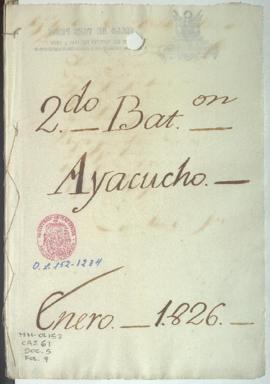 2.do Bat.on
Ayacucho.
O.L. 152-1284
Enero. 1.826.
MH-OL152
CAJ 61
DOC. 5
FOL. 9